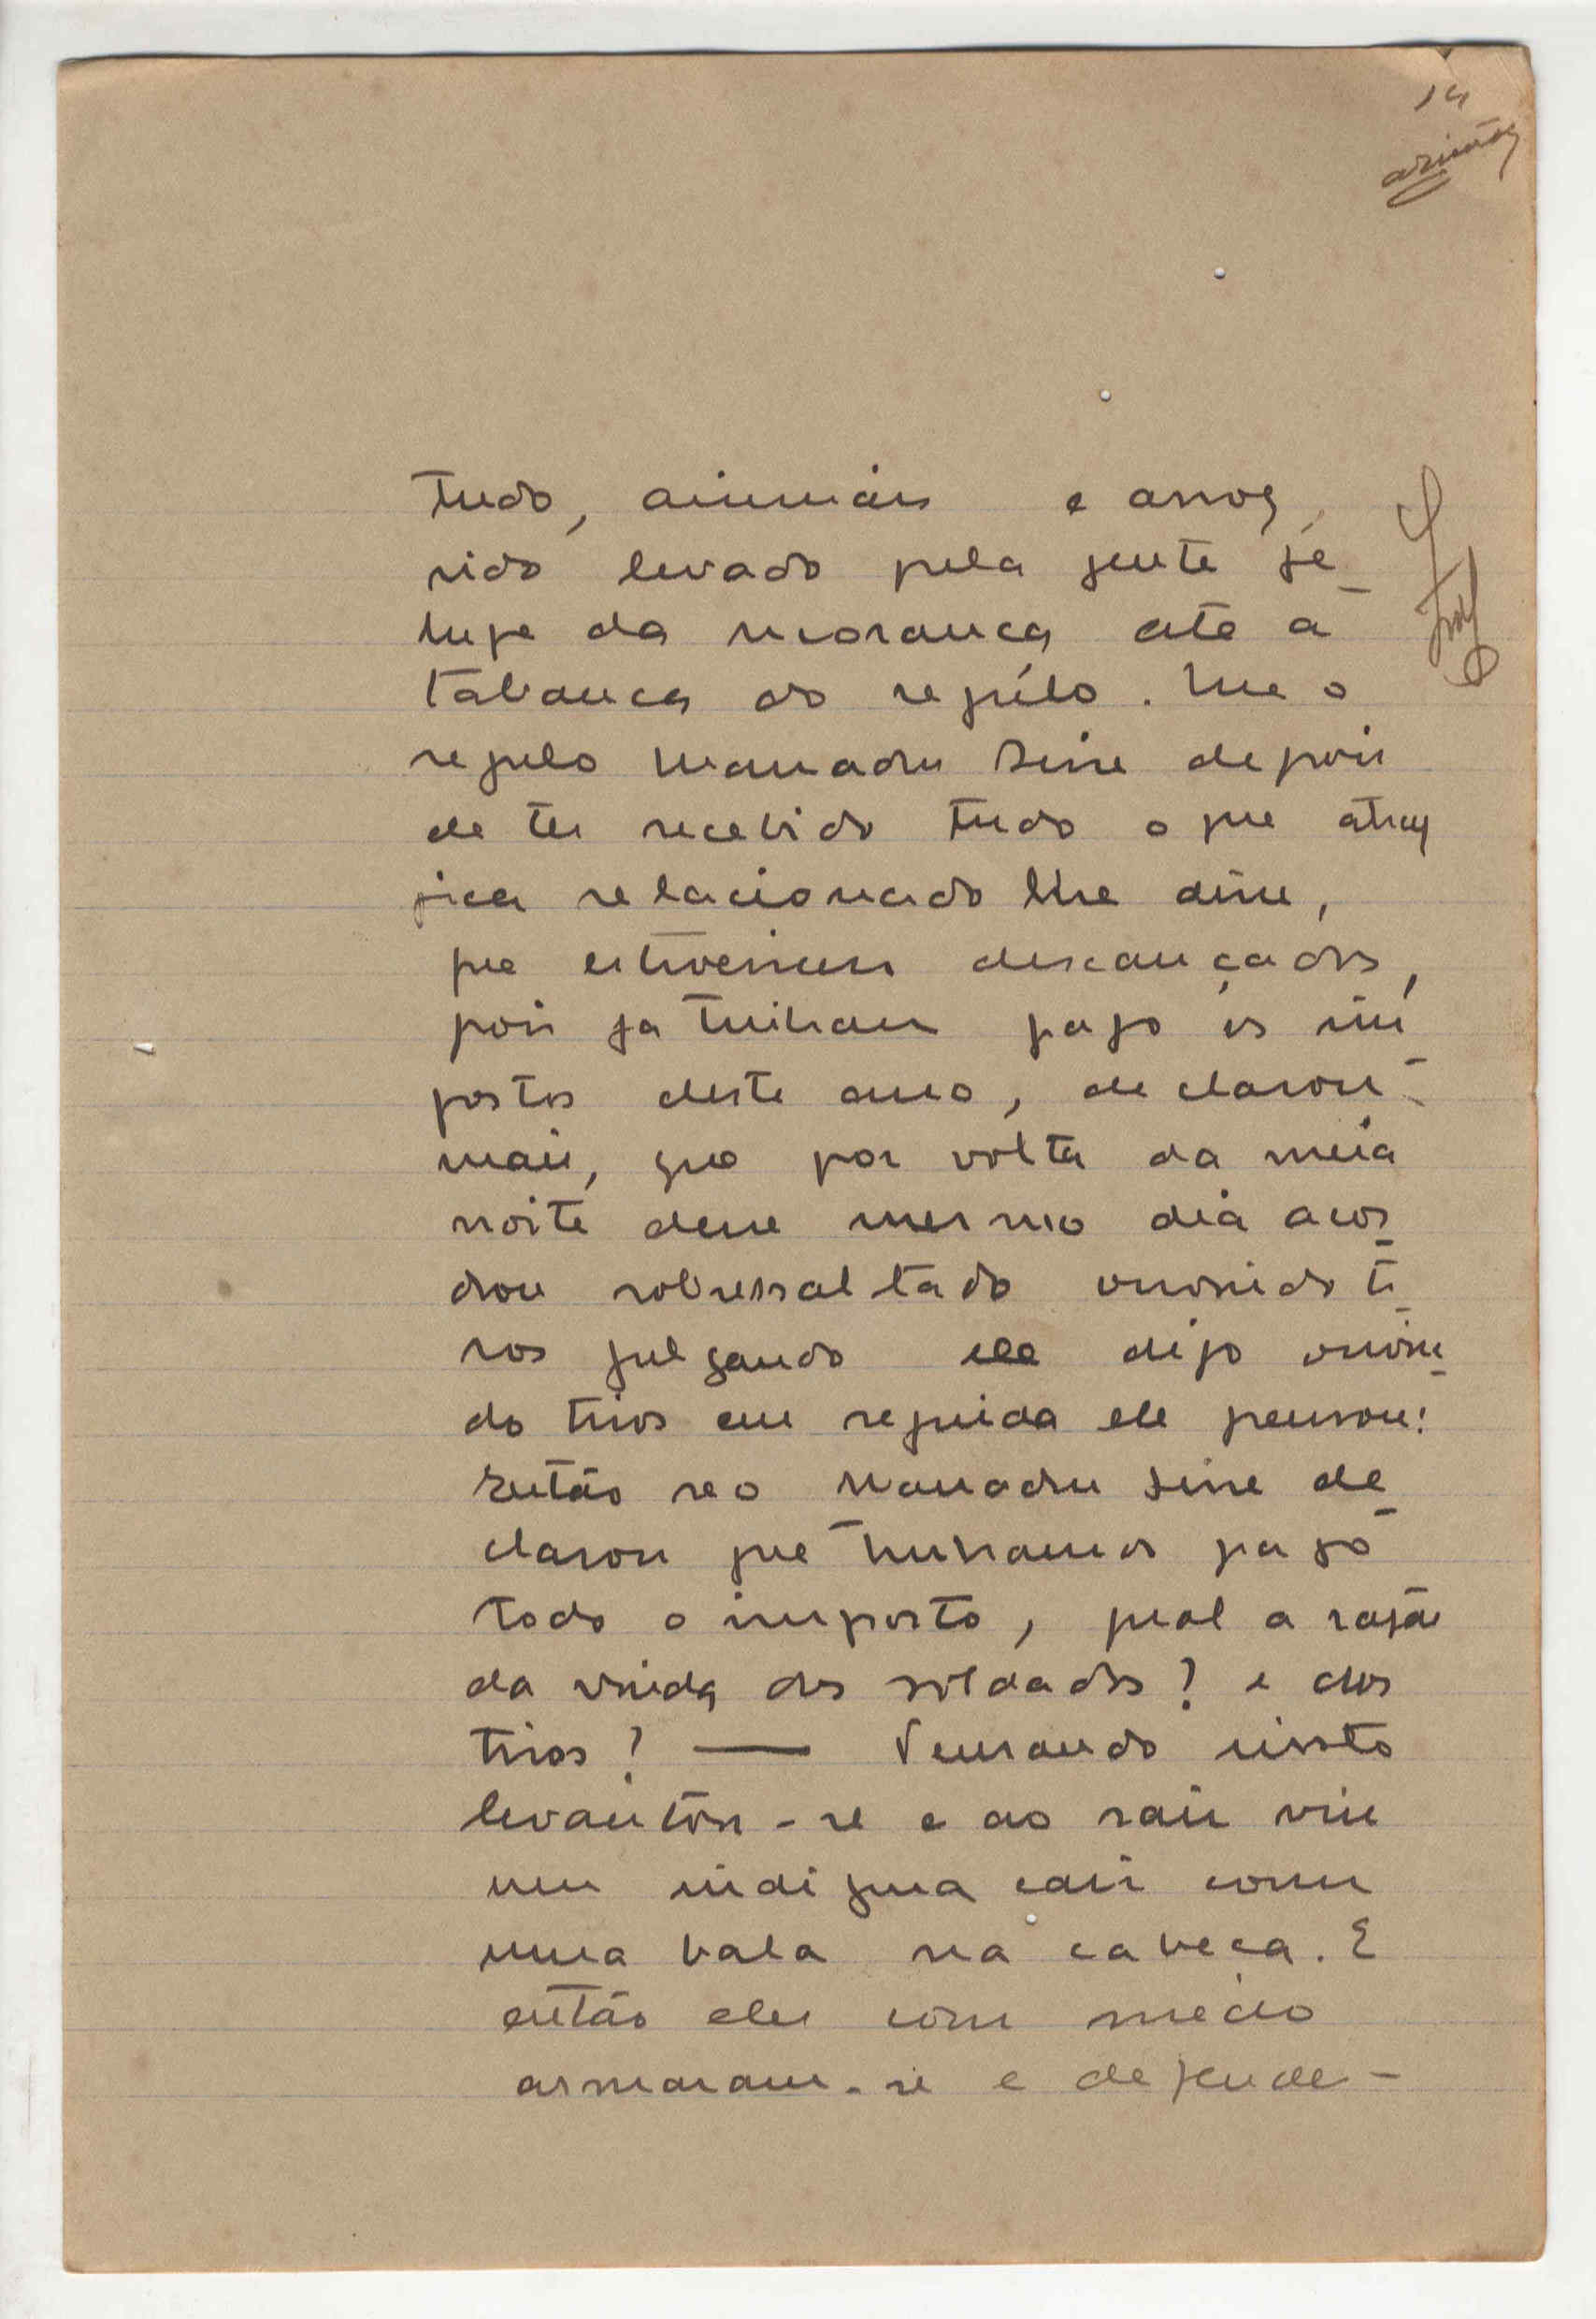 14
tudo, animais e arroz,
sido levado pela gente fe-
lupe da morança até a
tabanca do regúlo. Que o
regulo Mamadu Sine depois
de ter recebido tudo o que atraz
fica relacionado lhe disse,
que estivessem descançados,
pois ja tinham pago os im
postos deste ano, declarou
mais, que por volta da meia
noite desse mesmo dia acor
dou sobressaltado ouvindo ti
ros julgando ele digo ouvin
do tiros em seguida ele pensou:
Então se o Mamadu Sine de
clarou que tinhamos pago
todo o imposto, qual a razão
da vinda dos soldados? e dos
tiros? — Pensando nisto
levantou-se e ao sair viu
um indigna cair com
uma bala na cabeça. E
então eles com medo
armaram-se e defende-